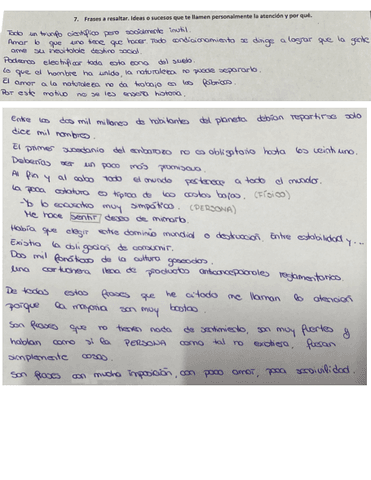 7. Frases a resaltar. Ideas o sucesos que te llamen personalmente la atención y por qué.
Todo un triunfo científico pero socialmente inútil.
Amar lo que uno tiene que hacer. Todo condicionamiento se dirige a lograr que la gente
ame su inevitable destino social.
Podemos electrificar toda esta zona del suelo
Lo que el hombre ha unido, la naturaleza no puede separarlo.
El amor a la naturaleza no da trabajo en las fábricas.
Por este motivo no se les enseña historia.
Entre los dos mil millones de habitantes del planeta debían repartirse solo
diez mil nombres.
El primer sucedaneo del embarazo no es obligatorio hasta los veintiuno.
Deberías ser un poco más promiscua.
Al fin y al cabo todo el mundo pertenece a todo el mundo.
La poca estatura es típica de las castas bajas. (FÍSICO)
-Yo lo encuentro muy simpático. (PERSONA)
Me hace sentir deseo de mimarlo.
Había que elegir entre dominio mundial o destrucción. Entre estabilidad y...
Existía la obligación de consumir.
Dos mil fanáticos de la cultura gaseados.
una cartuchera llena de productos anticoncepcionales reglamentarios.
De todas estas frases que he citado me llaman la atención
porque la mayoría son muy bastas.
Son frases que no tienen nada de sentimiento, son muy fuertes y
hablan como si la PERSONA como tal no existiera, fuesen
simplemente cosas.
Son frases con mucha imposición, con poco amor, poca sensibilidad.